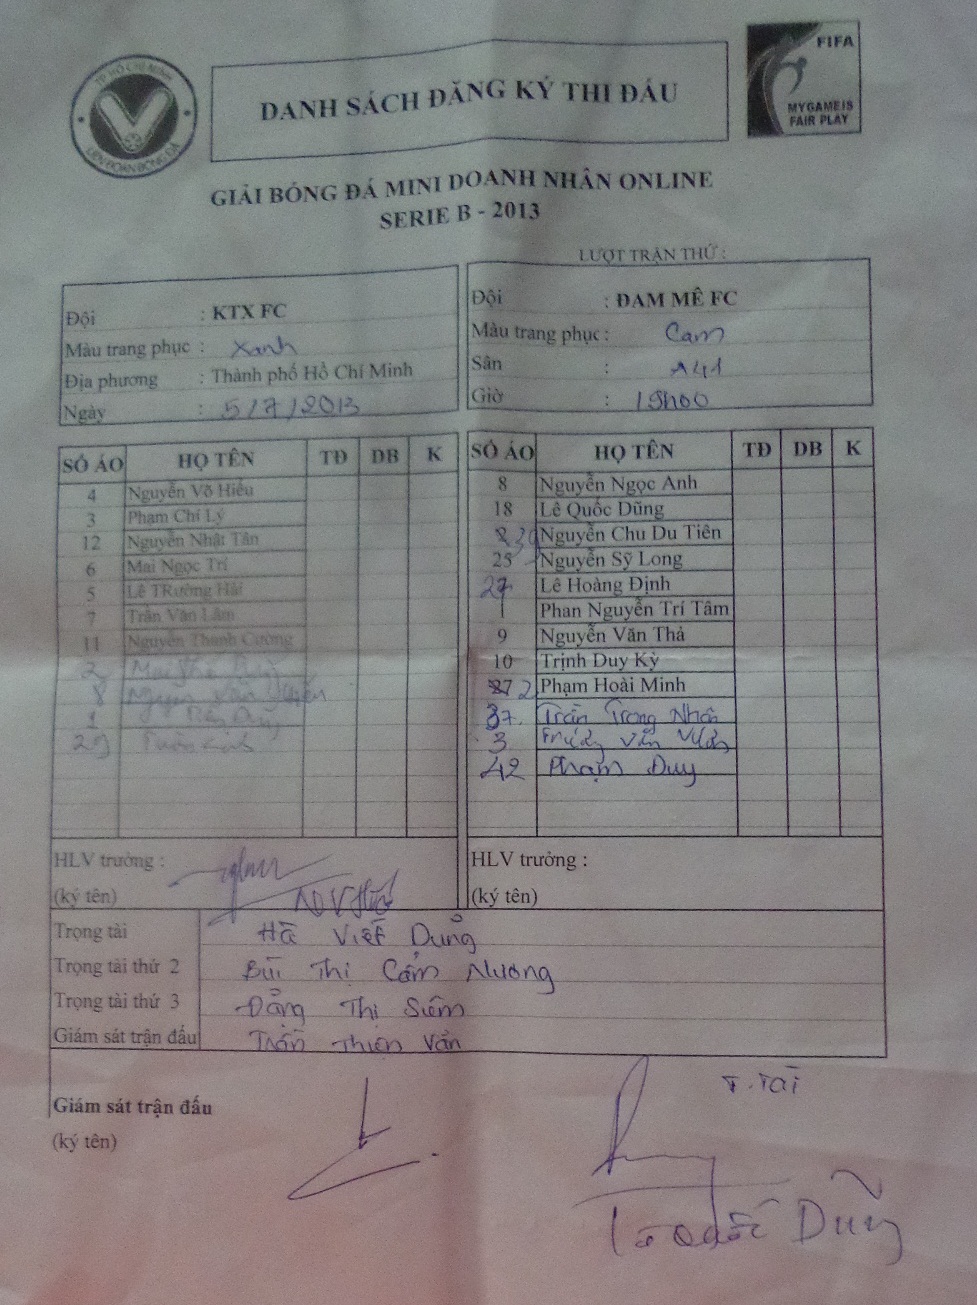 TP HỒ CHÍ MINH
LIÊN ĐOÀN BÓNG ĐÁ
DANH SÁCH ĐĂNG KÝ THI ĐẤU
FIFA
MY GAME IS
FAIR PLAY
GIẢI BÓNG ĐÁ MINI DOANH NHÂN ONLINE
SERIE B - 2013
LƯỢT TRẬN THỨ :
Đội : KTX FC
Màu trang phục : Xanh
Địa phương : Thành phố Hồ Chí Minh
Ngày : 5/7/2013
Đội : ĐAM MÊ FC
Màu trang phục : Cam
Sân : A41
Giờ : 19h00
SỐ ÁO HỌ TÊN TĐ DB K
4 Nguyễn Võ Hiếu
3 Phạm Chí Lý
12 Nguyễn Nhật Tân
6 Mai Ngọc Trí
5 Lê TRường Hải
7 Trần Văn Lâm
11 Nguyễn Thanh Cường
2 Mai
8 Nguyễn Văn
1 Duy
29
SỐ ÁO HỌ TÊN TĐ DB K
8 Nguyễn Ngọc Anh
18 Lê Quốc Dũng
39 Nguyễn Chu Du Tiên
25 Nguyễn Sỹ Long
27 Lê Hoàng Định
1 Phan Nguyễn Trí Tâm
9 Nguyễn Văn Thả
10 Trịnh Duy Kỳ
2 Phạm Hoài Minh
37. Trần Trọng Nhân
3 Văn
42 Phạm Duy
HLV trưởng :
(ký tên)
HLV trưởng :
(ký tên)
Trọng tài Hà Viết Dũng
Trọng tài thứ 2 Bùi Thị Cẩm Nương
Trọng tài thứ 3 Đặng Thị Siêm
Giám sát trận đấu Trần Thiên Văn
T. Tài
Giám sát trận đấu
(ký tên)
Lê Quốc Dũng